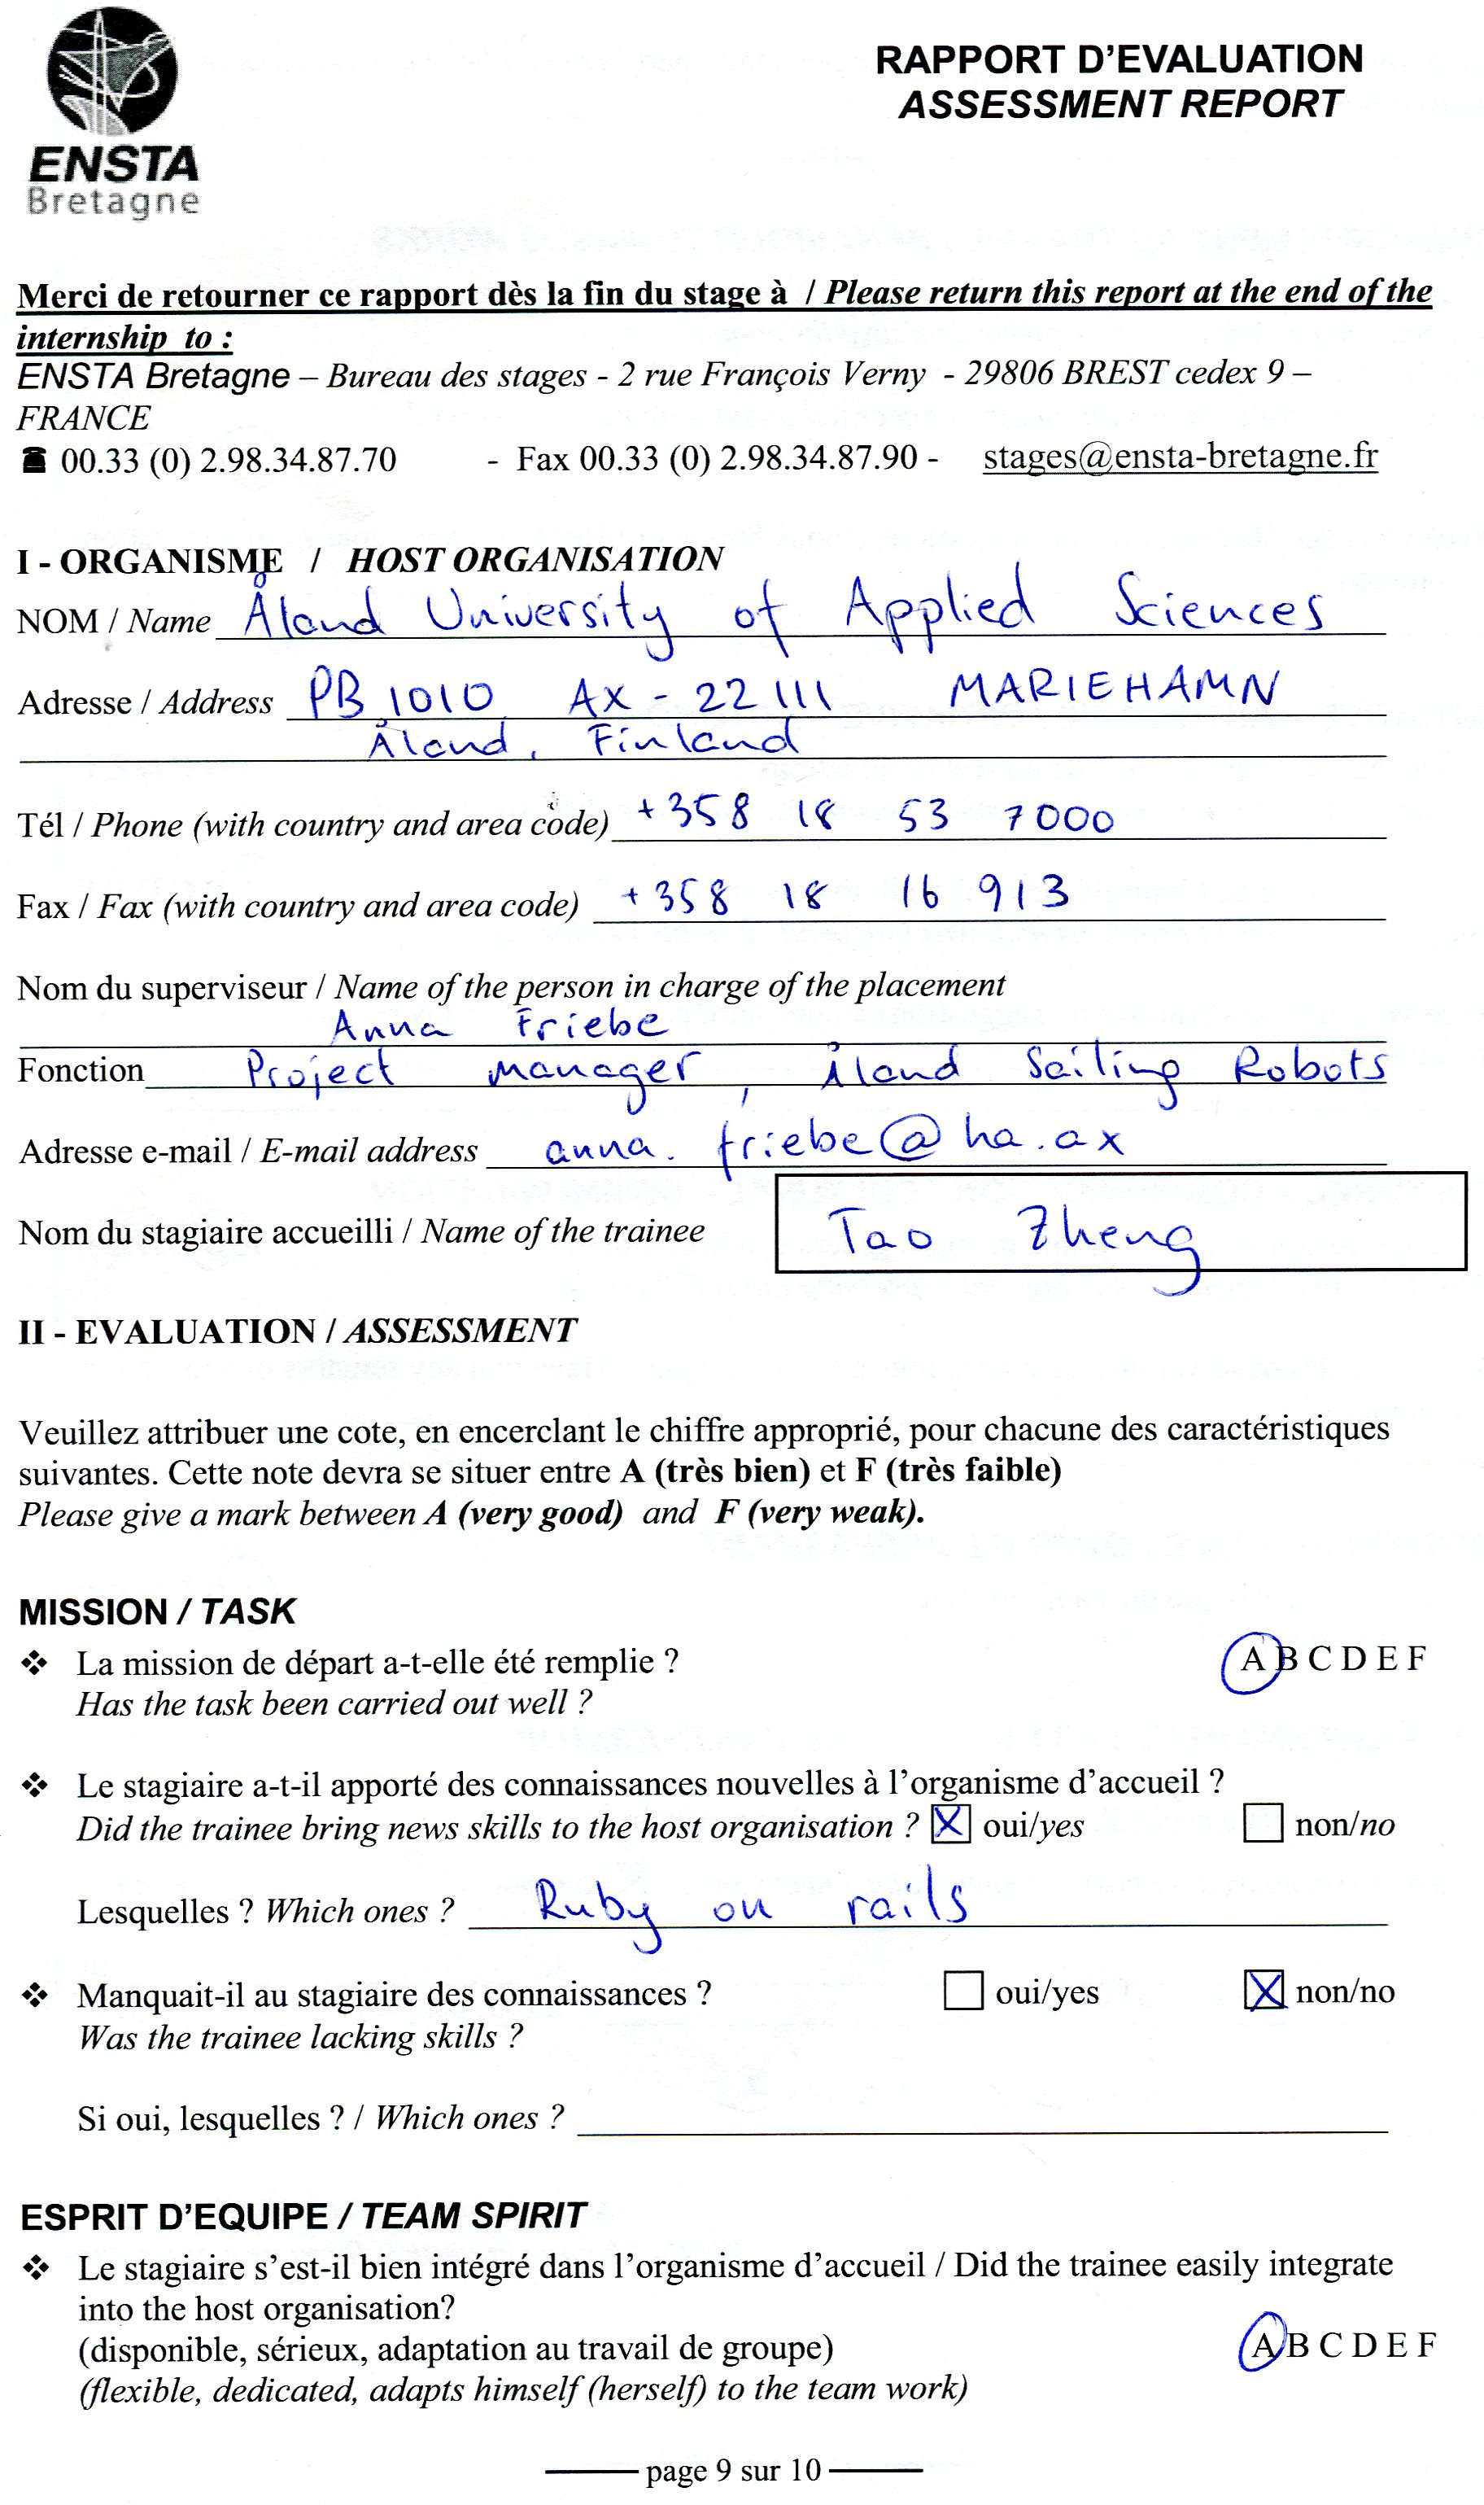 ENSTA
Bretagne
RAPPORT D'EVALUATION
ASSESSMENT REPORT
Merci de retourner ce rapport dès la fin du stage à / Please return this report at the end of the
internship to :
ENSTA Bretagne – Bureau des stages - 2 rue François Verny - 29806 BREST cedex 9 –
FRANCE
☎ 00.33 (0) 2.98.34.87.70 - Fax 00.33 (0) 2.98.34.87.90 - stages@ensta-bretagne.fr
I - ORGANISME / HOST ORGANISATION
NOM / Name Åland University of Applied Sciences
Adresse / Address PB 1010 AX - 22111 MARIEHAMN
Åland, Finland
Tél / Phone (with country and area code) +358 18 53 7000
Fax / Fax (with country and area code) +358 18 16 913
Nom du superviseur / Name of the person in charge of the placement
Anna Friebe
Fonction Project manager, Åland Sailing Robots
Adresse e-mail / E-mail address anna.friebe@ha.ax
Nom du stagiaire accueilli / Name of the trainee Tao Zheng
II - EVALUATION / ASSESSMENT
Veuillez attribuer une cote, en encerclant le chiffre approprié, pour chacune des caractéristiques
suivantes. Cette note devra se situer entre A (très bien) et F (très faible)
Please give a mark between A (very good) and F (very weak).
MISSION / TASK
❖ La mission de départ a-t-elle été remplie ? A B C D E F
Has the task been carried out well ?
❖ Le stagiaire a-t-il apporté des connaissances nouvelles à l'organisme d'accueil ?
Did the trainee bring news skills to the host organisation ? ☒ oui/yes ☐ non/no
Lesquelles ? Which ones ? Ruby on rails
❖ Manquait-il au stagiaire des connaissances ? ☐ oui/yes ☒ non/no
Was the trainee lacking skills ?
Si oui, lesquelles ? / Which ones ?
ESPRIT D'EQUIPE / TEAM SPIRIT
❖ Le stagiaire s'est-il bien intégré dans l'organisme d'accueil / Did the trainee easily integrate
into the host organisation?
(disponible, sérieux, adaptation au travail de groupe) A B C D E F
(flexible, dedicated, adapts himself (herself) to the team work)
page 9 sur 10